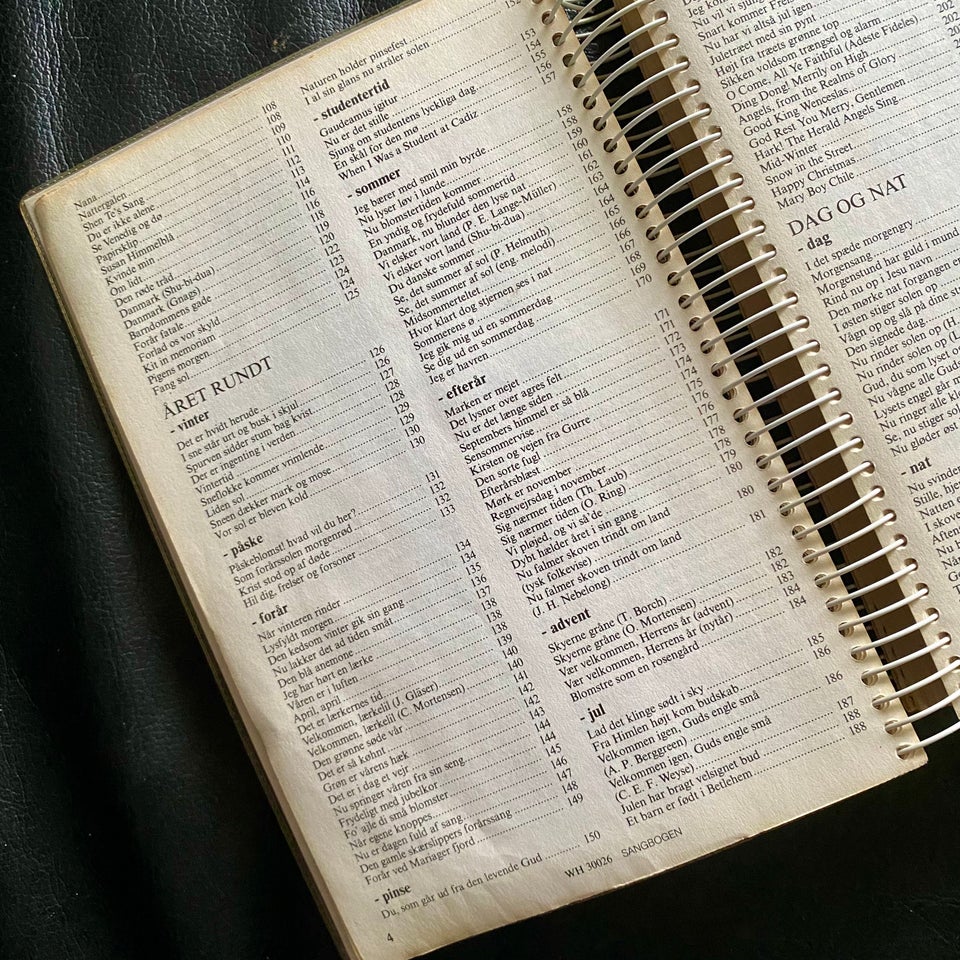 Nana 108
Nattergalen 108
Shen Te's Sang 109
Du er ikke alene 110
Se Venedig og dø 111
Papirsklip 112
Susan Himmelblå 113
Kvinde min 114
Om lidt 116
Den røde tråd 116
Danmark (Shu-bi-dua) 118
Danmark (Gnags) 119
Barndommens gade 120
Forår fatale 122
Forlad os vor skyld 123
Kit in memoriam 124
Pigens morgen 124
Fang sol 125
ÅRET RUNDT
- vinter
Det er hvidt herude 126
I sne står urt og busk i skjul 126
Spurven sidder stum bag kvist 127
Der er ingenting i verden 128
Vintertid 128
Sneflokke kommer vrimlende 129
Liden sol 129
Sneen dækker mark og mose 130
Vor sol er bleven kold 130
- påske
Påskeblomst! hvad vil du her? 131
Som forårssolen morgenrød 132
Krist stod op af døde 132
Hil dig, frelser og forsoner 133
- forår
Når vinteren rinder 134
Lysfyldt morgen 134
Den kedsom vinter gik sin gang 135
Nu lakker det ad tiden småt 136
Den blå anemone 137
Jeg har hørt en lærke 138
Våren er i luften 138
April, april 138
Det er lærkernes tid 139
Velkommen, lærkelil (J. Gläser) 140
Velkommen, lærkelil (C. Mortensen) 140
Den grønne søde vår 141
Det er så kønt 142
Grøn er vårens hæk 142
Det er i dag et vejr 143
Nu springer våren fra sin seng 144
Frydeligt med jubelkor 144
Fo' ajle di små blomster 145
Når egene knoppes 146
Nu er dagen fuld af sang 147
Den gamle skærslippers forårssang 148
Forår ved Mariager fjord 149
- pinse
Du, som går ud fra den levende Gud 150
4
Naturen holder pinsefest
I al sin glans nu stråler solen 152
- studentertid
Gaudeamus igitur 153
Nu er det stille 154
Sjung om studentens lyckliga dag 155
En skål for den mø 156
When I Was a Student at Cadiz 157
- sommer
Jeg bærer med smil min byrde 158
Nu lyser løv i lunde 158
Nu blomstertiden kommer 159
En yndig og frydefuld sommertid 160
Danmark, nu blunder den lyse nat 161
Vi elsker vort land (P. E. Lange-Müller) 162
Vi elsker vort land (Shu-bi-dua) 162
Du danske sommer 163
Se, det summer af sol (P. Helmuth) 164
Se, det summer af sol (eng. melodi) 165
Midsommerteltet 166
Hvor klart dog stjernen ses i nat 167
Sommerens ø 168
Jeg gik mig ud en sommerdag 168
Se dig ud en sommerdag 169
Jeg er havren 170
- efterår
Marken er mejet 171
Det lysner over agres felt 171
Nu er det længe siden 172
Septembers himmel er så blå 173
Sensommervise 174
Kirsten og vejen fra Gurre 174
Den sorte fugl 175
Efterårsblæst 176
Mørk er november 176
Regnvejrsdag i november 177
Sig nærmer tiden (Th. Laub) 178
Sig nærmer tiden (O. Ring) 178
Vi pløjed, og vi så'de 179
Dybt hælder året i sin gang 180
Nu falmer skoven trindt om land
(tysk folkevise) 180
Nu falmer skoven trindt om land
(J. H. Nebelong) 181
- advent
Skyerne gråne (T. Borch) 182
Skyerne gråne (O. Mortensen) 182
Vær velkommen, Herrens år (advent) 183
Vær velkommen, Herrens år (nytår) 184
Blomstre som en rosengård 184
- jul
Lad det klinge sødt i sky 185
Fra Himlen højt kom budskab 186
Velkommen igen, Guds engle små
(A. P. Berggreen) 186
Velkommen igen, Guds engle små
(C. E. F. Weyse) 187
Julen har bragt velsignet bud 188
Et barn er født i Betlehem 188
WH 30026 SANGBOGEN
Jeg
Nu vil vi
Snart kommer
Nu har vi altså jul igen
Juletræet med sin pynt
Højt fra træets grønne top
Sikken voldsom trængsel og alarm 202
O Come, All Ye Faithful (Adeste Fideles) 202
Ding Dong! Merrily on High
Angels, from the Realms of Glory
Good King Wenceslas
God Rest You Merry, Gentlemen
Hark! the Herald Angels Sing
Mid-Winter
Snow in the Street
Happy Christmas
Mary Boy Chile
DAG OG NAT
- dag
I det spæde morgengry
Morgensang
Morgenstund har guld i mund
Rind nu op i Jesu navn
Den mørke nat forgangen er
I østen stiger solen op
Vågn op og slå på dine
Den signede dag
Nu rinder solen op (H.
Nu rinder solen op (
Gud, du som lyset
Nu vågne alle Guds
Lysets engel går
Nu ringer alle
Se, nu stiger
Nu gløder
- nat
Nu svinder
Stille,
Natten
I skov